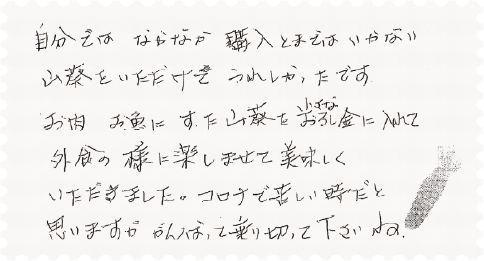 自分では なかなか 購入とまではいかない
山葵をいただけて うれしかったです
お肉 お魚に すった山葵を小さなおろし金に入れて
外食の様に楽しませて美味しく
いただきました。コロナで苦しい時だと
思いますが がんばって乗り切って下さいね。